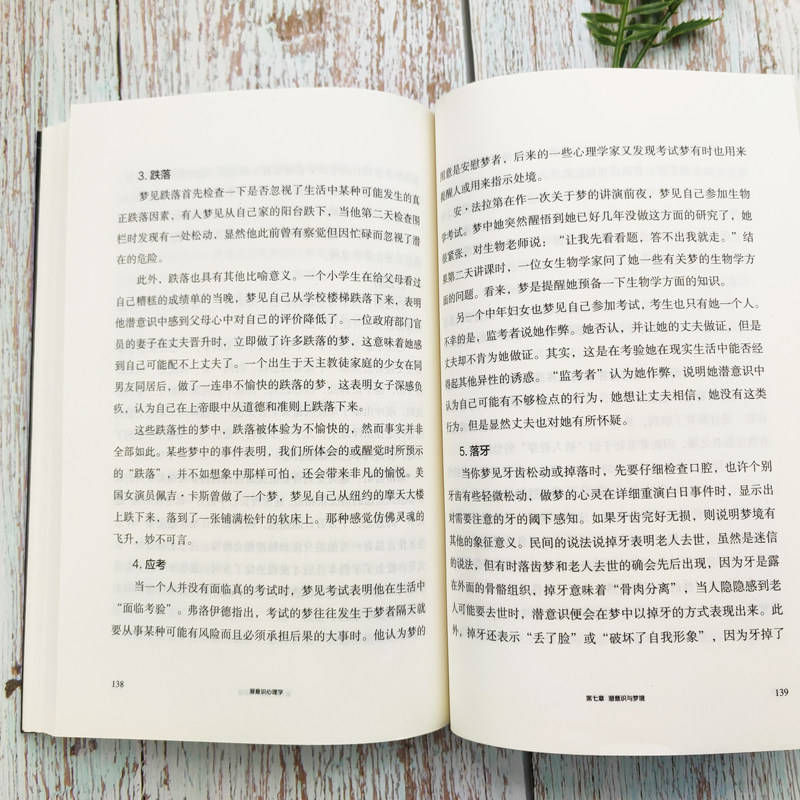 3. 跌落
梦见跌落首先检查一下是否忽视了生活中某种可能发生的真
正跌落因素，有人梦见从自己家的阳台跌下，当他第二天检查围
栏时发现有一处松动，显然他此前曾有察觉但因忙碌而忽视了潜
在的危险。
此外、跌落也具有其他比喻意义。一个小学生在给父母看过
自己糟糕的成绩单的当晚，梦见自己从学校楼梯跌落下来，表明
他潜意识中感到父母心中对自己的评价降低了。一位政府部门官
员的妻子在丈夫晋升时，立即做了许多跌落的梦，这意味着她感
到自己可能配不上丈夫了。一个出生于天主教徒家庭的少女在同
男友同居后，做了一连串不愉快的跌落的梦，这表明女子深感负
疚，认为自己在上帝眼中从道德和准则上跌落下来。
这些跌落性的梦中，跌落被体验为不愉快的，然而事实并非
全部如此。某些梦中的事件表明，我们所体会的或醒觉时所预示
的“跌落”，并不如想象中那样可怕，还会带来非凡的愉悦。美
国女演员佩吉·卡斯曾做了一个梦，梦见自己从纽约的摩天大楼
上跌下来，落到了一张铺满松针的软床上。那种感觉仿佛灵魂的
飞升，妙不可言。
4. 应考
当一个人并没有面临真的考试时，梦见考试表明他在生活中
“面临考验”。弗洛伊德指出，考试的梦往往发生于梦者隔天就
要从事某种可能有风险而且必须承担后果的大事时。他认为梦的
138
潜意识心理学
用意是安慰梦者，后来的一些心理学家又发现考试梦有时也用来
提醒人或用来指示处境。
安·法拉第在作一次关于梦的讲演前夜，梦见自己参加生物
学考试。梦中她突然醒悟到她已好几年没做这方面的研究了，她
很紧张，对生物老师说：“让我先看看题，答不出我就走。”结
果第二天讲课时，一位女生物学家问了她一些有关梦的生物学方
面的问题。看来，梦是提醒她预备一下生物学方面的知识。
另一个中年妇女也梦见自己参加考试，考生也只有她一个人。
不幸的是，监考者说她作弊。她否认，并让她的丈夫做证，但是
丈夫却不肯为她做证。其实，这是在考验她在现实生活中能否经
得起其他异性的诱惑。“监考者”认为她作弊，说明她潜意识中
认为自己可能有不够检点的行为，她想让丈夫相信，她没有这类
行为。但是显然丈夫也对她有所怀疑。
5. 落牙
当你梦见牙齿松动或掉落时，先要仔细检查口腔，也许个别
牙齿有些轻微松动，做梦的心灵在详细重演白日事件时，显示出
对需要注意的牙的阈下感知。如果牙齿完好无损，则说明梦境有
其他的象征意义。民间的说法说掉牙表明老人去世，虽然是迷信
的说法，但有时落齿梦和老人去世的确会先后出现，因为牙是露
在外面的骨骼组织，掉牙意味着“骨肉分离”，当人隐隐感到老
人可能要去世时，潜意识便会在梦中以掉牙的方式表现出来。此
外，掉牙还表示“丢了脸”或“破坏了自我形象”，因为牙掉了
第七章 潜意识与梦境
139